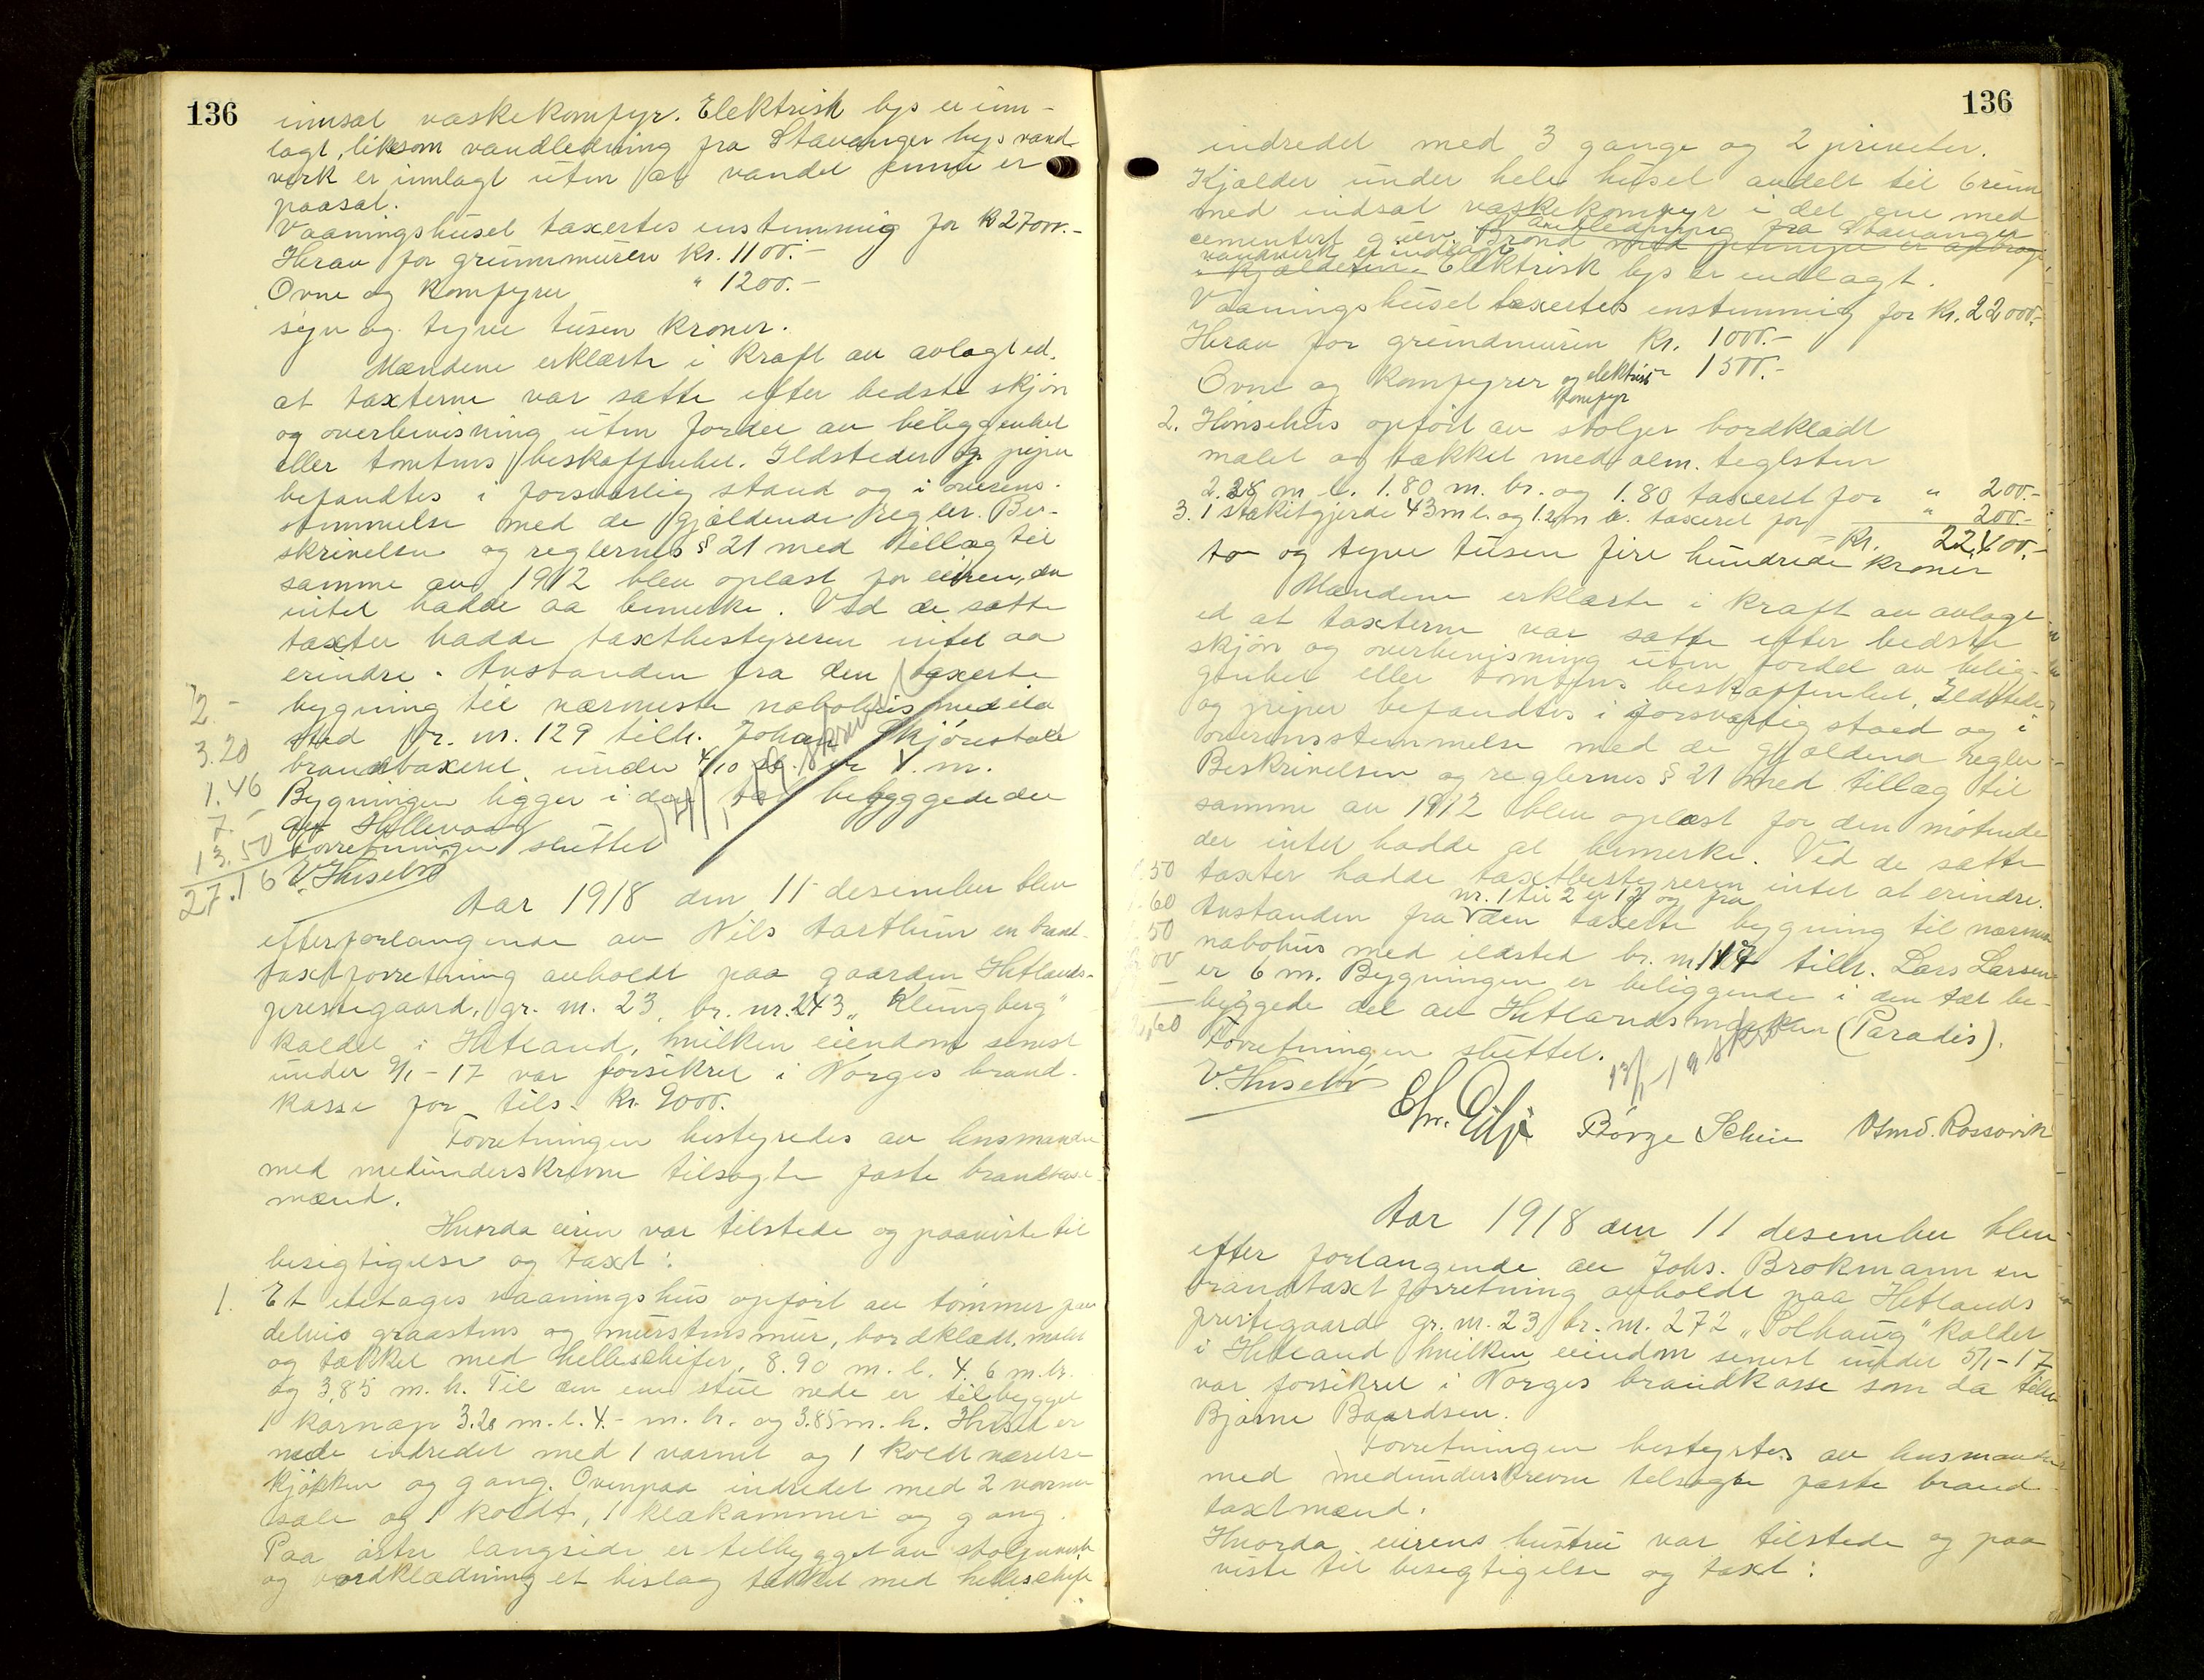 136
innsat vaskekomfyr. Elektrisk lys er inn-
lagt, likesom vandledning fra Stavanger bys vand
verk er innlagt uten at vandet ennu er
paasat.
Vaaningshuset taxertes enstemmig for kr 27000.-
Herav for grunnmuren Kr. 1100.-
Ovne og komfyrer " 1200.-
syv og tyve tusen kroner.
Mændene erklærte i kraft av avlagt ed,
at taxterne var satte efter bedste skjøn
og overbevisning uten fordel av beliggenhet
eller tomtens beskaffenhet. Ildsteder og piper
befandtes i forsvarlig stand og i overens-
stemmelse med de gjældende regler. Be-
skrivelsen og reglernes § 21 med tillæg til
samme av 1912 blev oplæst for eieren, der
intet hadde aa bemerke. Ved de satte
taxter hadde taxtbestyreren intet aa
erindre. Avstanden fra den taxerte
bygning til nærmeste nabohus med ild
sted br. nr. 129 tilh. Johan Skjørestad
brandtaxeret under 4/10 er 4. m.
Bygningen ligger i den tæt bebyggede del
av Hillevaag
Forretningen sluttet
V. Husebø
2.-
3.20
1.46
7.-
13.50
27.16
Aar 1918 den 11 desember blev
efter forlangende av Nils Aarthun en brand-
taxtforretning avholdt paa gaarden Hetlands-
prestegaard, gr. nr. 23, br. nr. 243 "Klungberg"
kaldet i Hetland, hvilken eiendom senest
under 9/1-17 var forsikret i Norges brand-
kasse for tils. kr. 9000.
Forretningen bestyredes av lensmanden
med medunderskrevne tilsagte faste brandtaxt-
mænd.
Hvorda eieren var tilstede og paaviste til
besigtigelse og taxt:
1. Et etetages vaaningshus opført av tømmer paa
delvis graastens og murstensmur, bordklædt, malet
og tækket med helleskifer, 8.90 m. l. 4.6 m. br.
og 3.85 m. h. Til den ene stue nede er tilbygget
1 karnap 3.28 m. l. 4.- m. br. og 3.85 m. h. Huset er
nede indredet med 1 varmt og 1 koldt værelse
kjøkken og gang. Ovenpaa indredet med 2 varme
sale og 1 koldt, 1 klækammer og gang.
Paa østre langside er tilbygget av stolpeverk
og bordklædning et bislag tækket med helleskifer
136
indredet med 3 gange og 2 priveter.
Kjælder under hele huset avdelt til 6 rum
med indsat vaskekomfyr i det ene med
cementert gulv. Vandledning fra Stavanger
vandverk er indlagt
Brønd med pumpe er anbragt
i kjælderen. Elektrisk lys er indlagt.
Vaaningshuset taxertes enstemmig for Kr. 22000.-
Herav for grundmuren Kr. 1000.-
Ovne og komfyrer og elektrisk komfyr " 1500.-
2. Hønsehus opført av stolper bordklædt
malet og tækket med alm. teglsten
2.28 m. l. 1.80 m. br. og 1.80 taxeret for " 200.-
3. 1 stakitgjerde 43 m l. og 1.20 m h. taxeret for " 200.-
Kr. 22,400.-
to og tyve tusen fire hundrede kroner
Mændene erklærte i kraft av avlagt
ed at taxterne var satte efter bedste
skjøn og overbevisning uten fordel av belig-
genhet eller tomtens beskaffenhet, Ildsteder
og piper befandtes i forsvarlig stand og i
overensstemmelse med de gjældene regler
Beskrivelsen og reglernes § 21 med tillæg til
samme av 1912 blev oplæst for den møtende
der intet hadde at bemerke. Ved de satte
taxter hadde taxtbestyreren intet at erindre.
nr. 1 til 2 er 12 og fra
Avstanden fra den taxerte bygning til nærmeste
nabohus med ildsted br. nr. 117 tilh. Lars Larsen
er 6 m. Bygningen er beliggende i den tæt be-
byggede del av Hetlandsmarken (Paradis).
Forretningen sluttet.
V. Husebø
Børge Scheie
Osmd. Rossavik
Aar 1918 den 11 desember blev
efter forlangende av Johs. Brokmann en
brandtaxtforretning avholdt paa Hetlands
prestegaard gr. nr. 23 br. nr. 272 "Solhaug" kaldet
i Hetland hvilken eiendom senest under 5/1-17
var forsikret i Norges brandkasse som da tilh.
Bjarne Baardsen.
Forretningen bestyrtes av lensmanden
med medunderskrevne tilsagte faste brand
taxtmænd.
Hvorda eierens hustru var tilstede og paa
viste til besigtigelse og taxt: